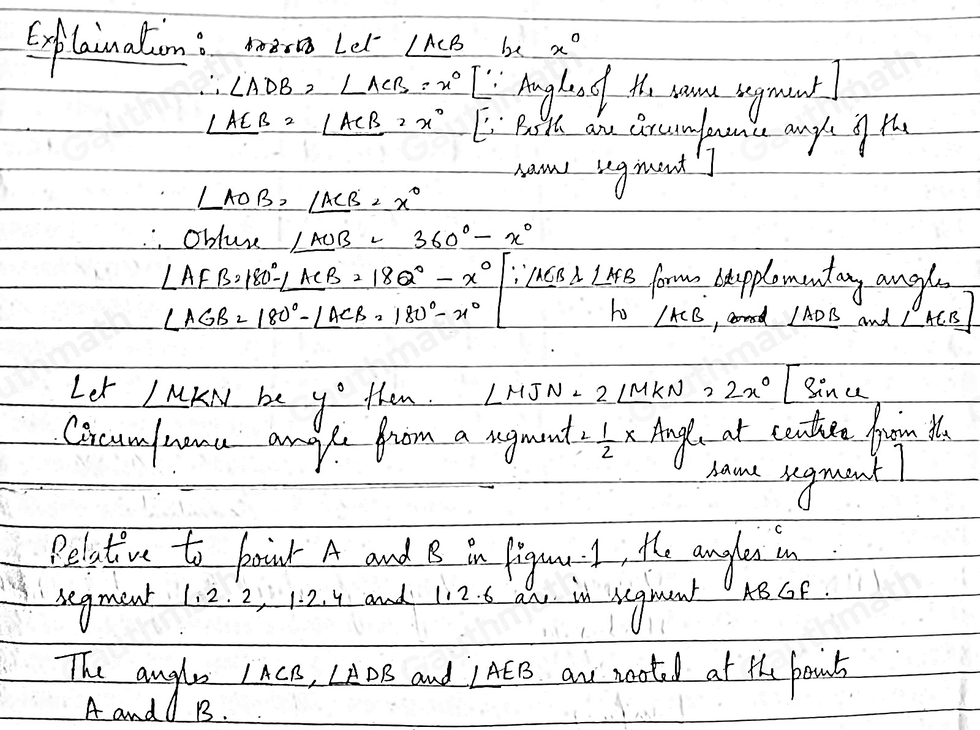 Explaination: Let ∠ACB be x°
∴ ∠ADB = ∠ACB = x° [∵ Angles of the same segment]
∠AEB = ∠ACB = x° [∵ Both are circumference angle of the
same segment]
∠AOB = ∠ACB = x°
∴ Obtuse ∠AOB = 360° - x°
∠AFB = 180° - ∠ACB = 180° - x° [∵ ∠AGB & ∠AFB forms supplementary angles
∠AGB = 180° - ∠ACB = 180° - x° to ∠ACB, ∠ADB and ∠AEB]
Let ∠MKN be y° then. ∠MJN = 2∠MKN = 2x° [Since
Circumference angle from a segment = 1/2 × Angle at centre from the
same segment]
Relative to point A and B in figure-1, the angles in
segment 1.2.2, 1.2.4 and 1.2.6 are in segment ABGF.
The angles ∠ACB, ∠ADB and ∠AEB are rooted at the points
A and B.
Gauthmath